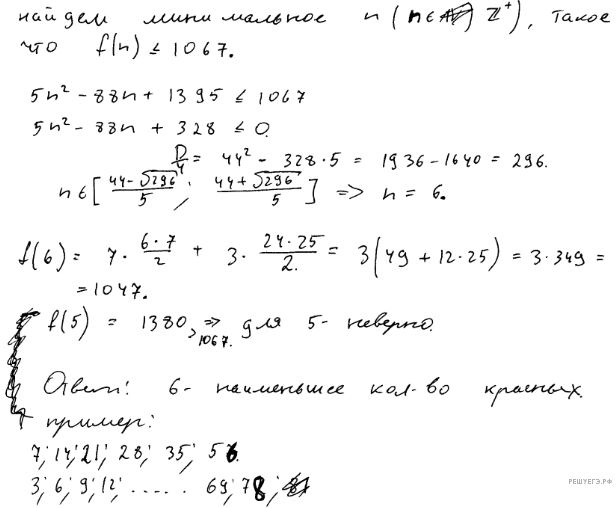 найдем минимальное n (n ∈ Z⁺), такое
что f(n) ≤ 1067.
5n² - 88n + 1395 ≤ 1067
5n² - 88n + 328 ≤ 0.
D/4 = 44² - 328·5 = 1936 - 1640 = 296.
n ∈ [(44-√296)/5 ; (44+√296)/5] => n = 6.
f(6) = 7·(6·7)/2 + 3·(24·25)/2 = 3(49 + 12·25) = 3·349 =
= 1047.
f(5) = 1380 > 1067. => для 5 - неверно.
Ответ: 6 - наименьшее кол-во красных.
пример:
7; 14; 21; 28; 35; 56.
3; 6; 9; 12; ..... 69; 78;
РЕШУЕГЭ.РФ